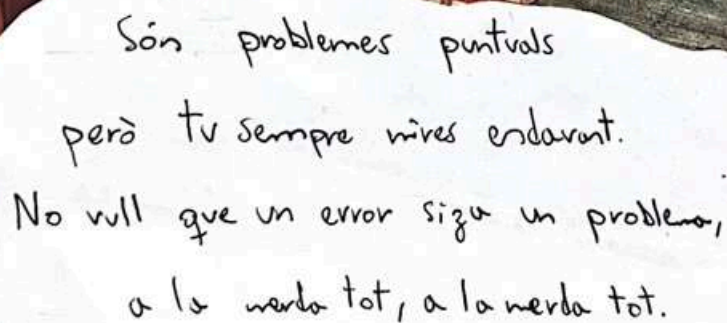 Són problemes puntuals
però tu sempre mires endavant.
No vull que un error siga un problema,
a la merda tot, a la merda tot.